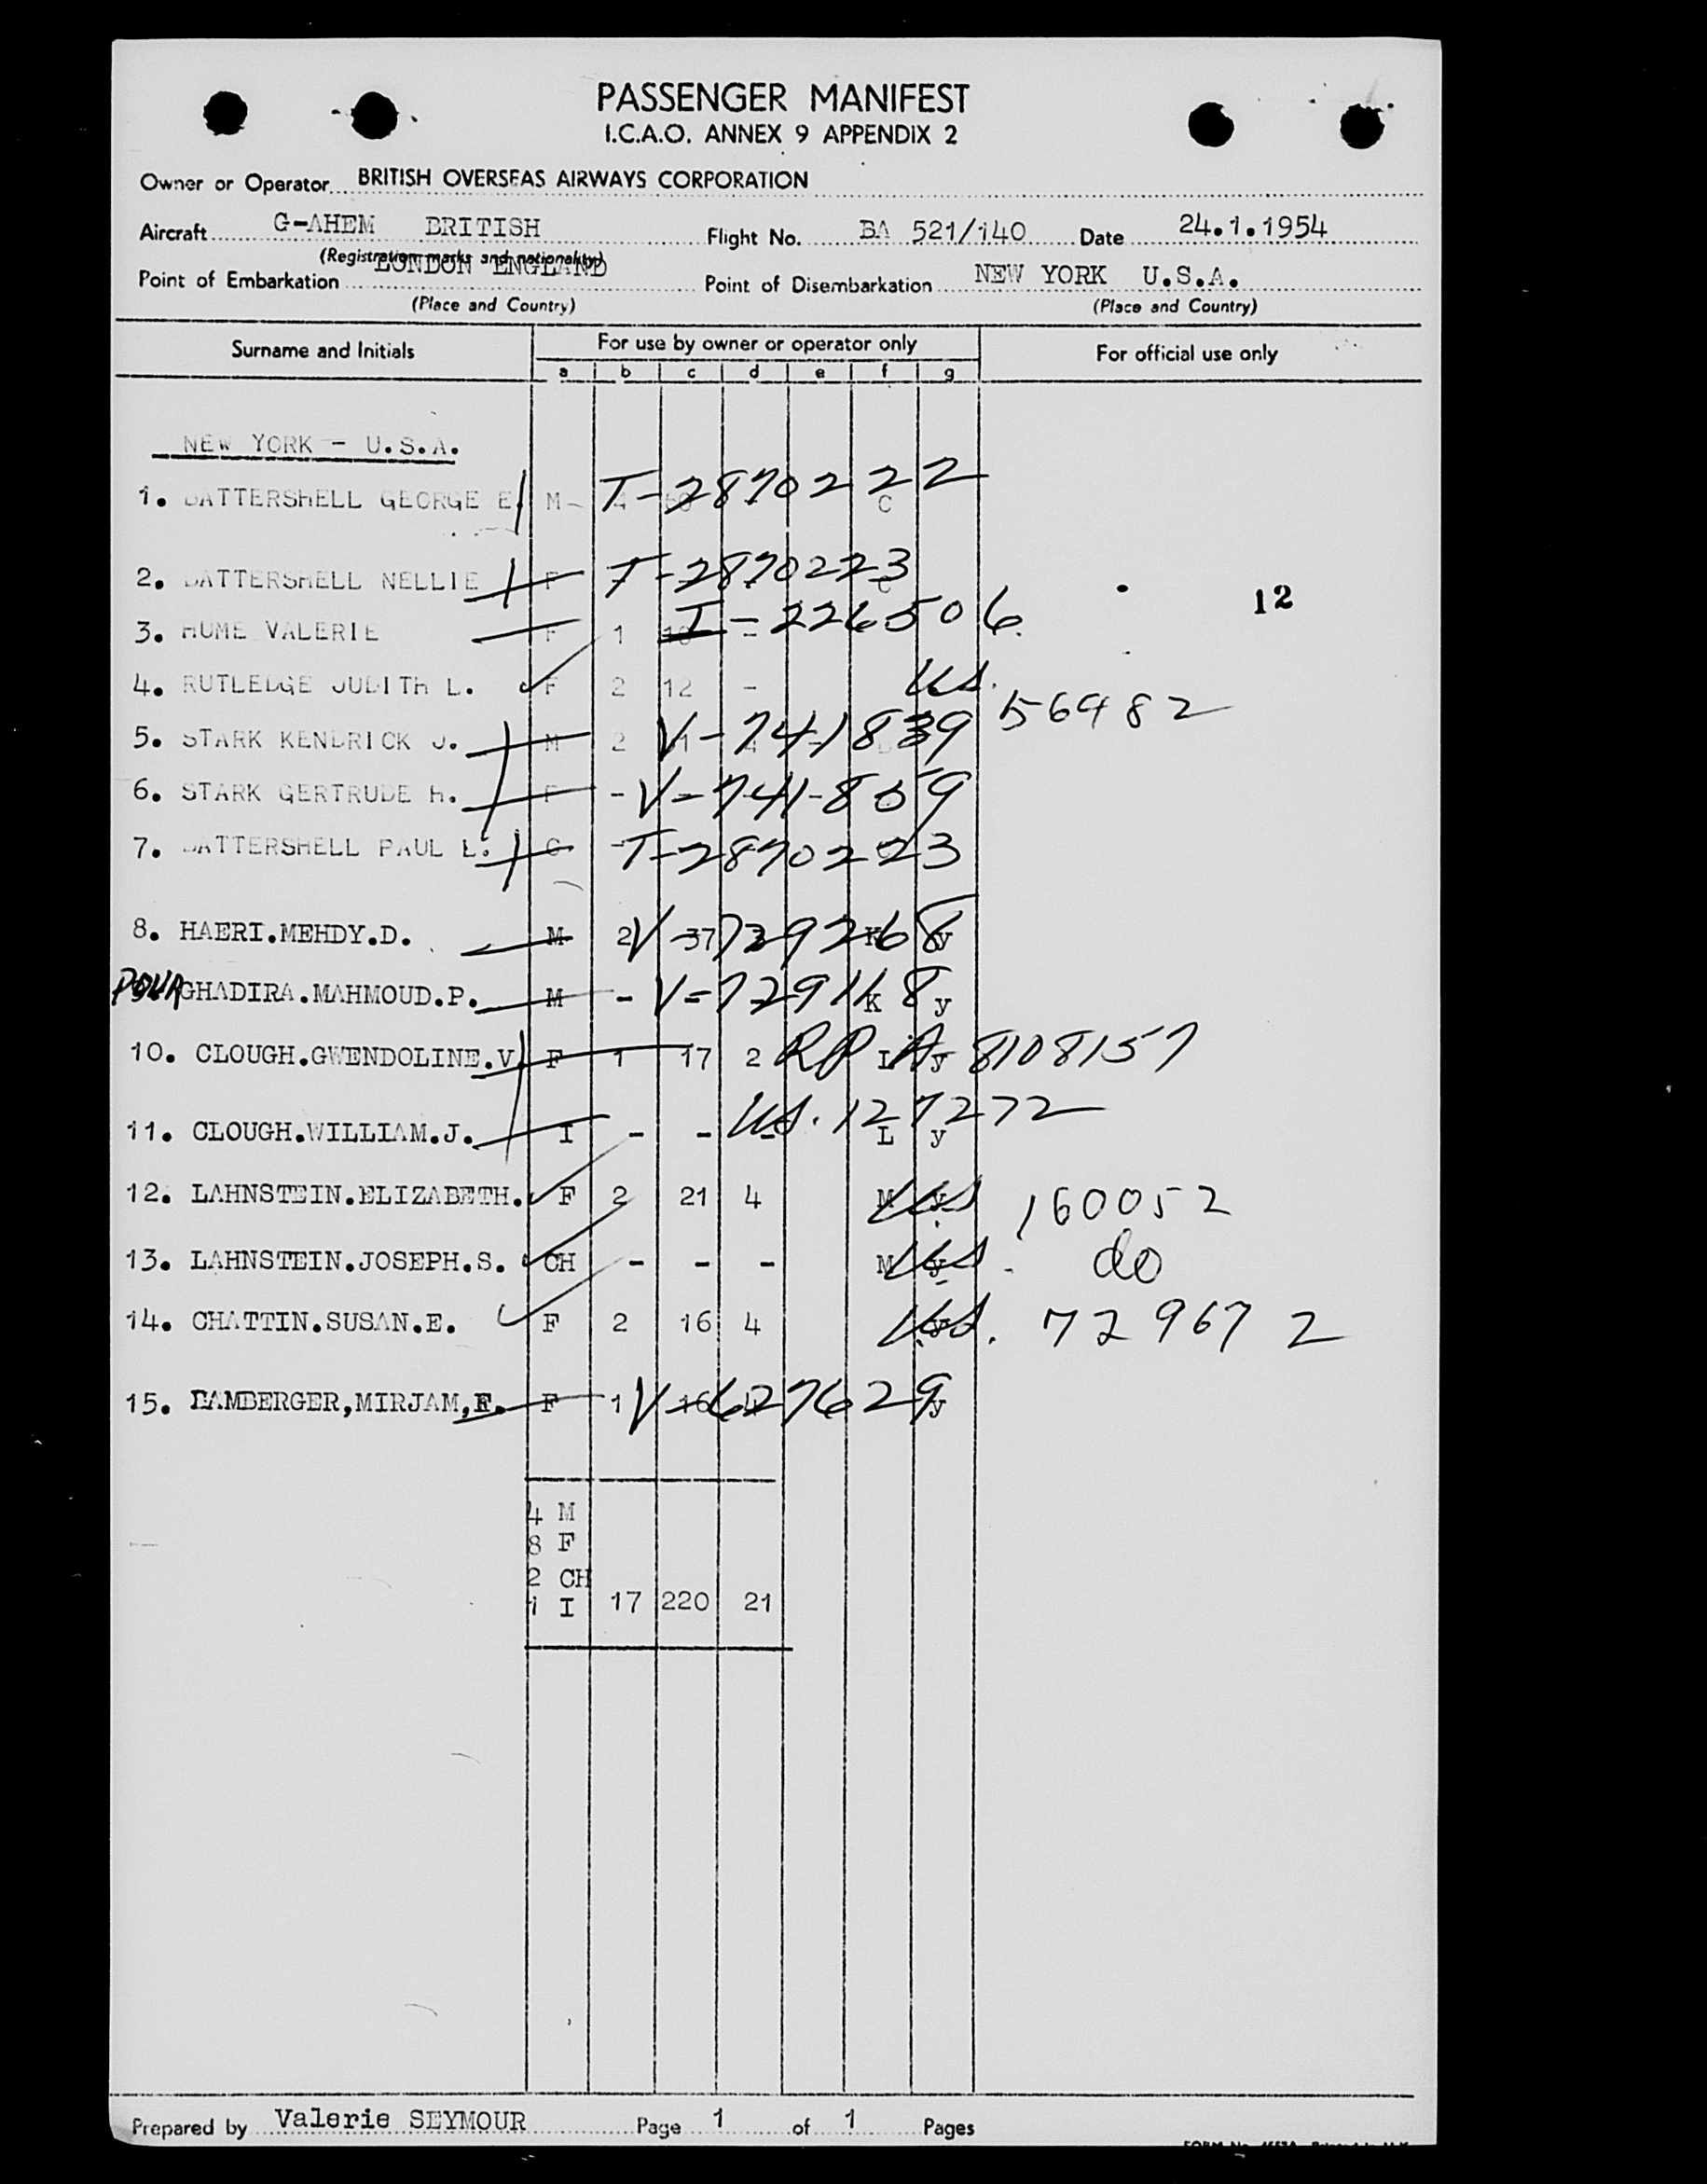 PASSENGER MANIFEST
I.C.A.O. ANNEX 9 APPENDIX 2
Owner or Operator BRITISH OVERSEAS AIRWAYS CORPORATION
Aircraft G-AHEM BRITISH Flight No. BA 521/140 Date 24.1.1954
(Registration marks and nationality)
Point of Embarkation LONDON ENGLAND Point of Disembarkation NEW YORK U.S.A.
(Place and Country) (Place and Country)
Surname and Initials For use by owner or operator only For official use only
a b c d e f g
NEW YORK - U.S.A.
1. BATTERSHELL GEORGE E. M 4 T-2870222 C
2. BATTERSHELL NELLIE F T-2870223 C
12
3. HUME VALERIE F 1 I-226506
4. RUTLEDGE JUDITH L. F 2 12 - US. 156482
5. STARK KENDRICK J. M 2 V-741839
6. STARK GERTRUDE H. F - V-741-859
7. BATTERSHELL PAUL L. C - T-2870223
8. HAERI.MEHDY.D. M 2 37 V-739268 K y
POUR GHADIRA.MAHMOUD.P. M - - V-729168 K y
10. CLOUGH.GWENDOLINE.V. F 1 17 2 RP L y A-8108157
11. CLOUGH.WILLIAM.J. I - - - US. 127272 L y
12. LAHNSTEIN.ELIZABETH. F 2 21 4 M y US 160052
13. LAHNSTEIN.JOSEPH.S. CH - - - M y US. do
14. CHATTIN.SUSAN.E. F 2 16 4 y US. 729672
15. BAMBERGER,MIRJAM,E. F 1 16 4 V-627629 y
4 M
8 F
2 CH
1 I 17 220 21
Prepared by Valerie SEYMOUR Page 1 of 1 Pages